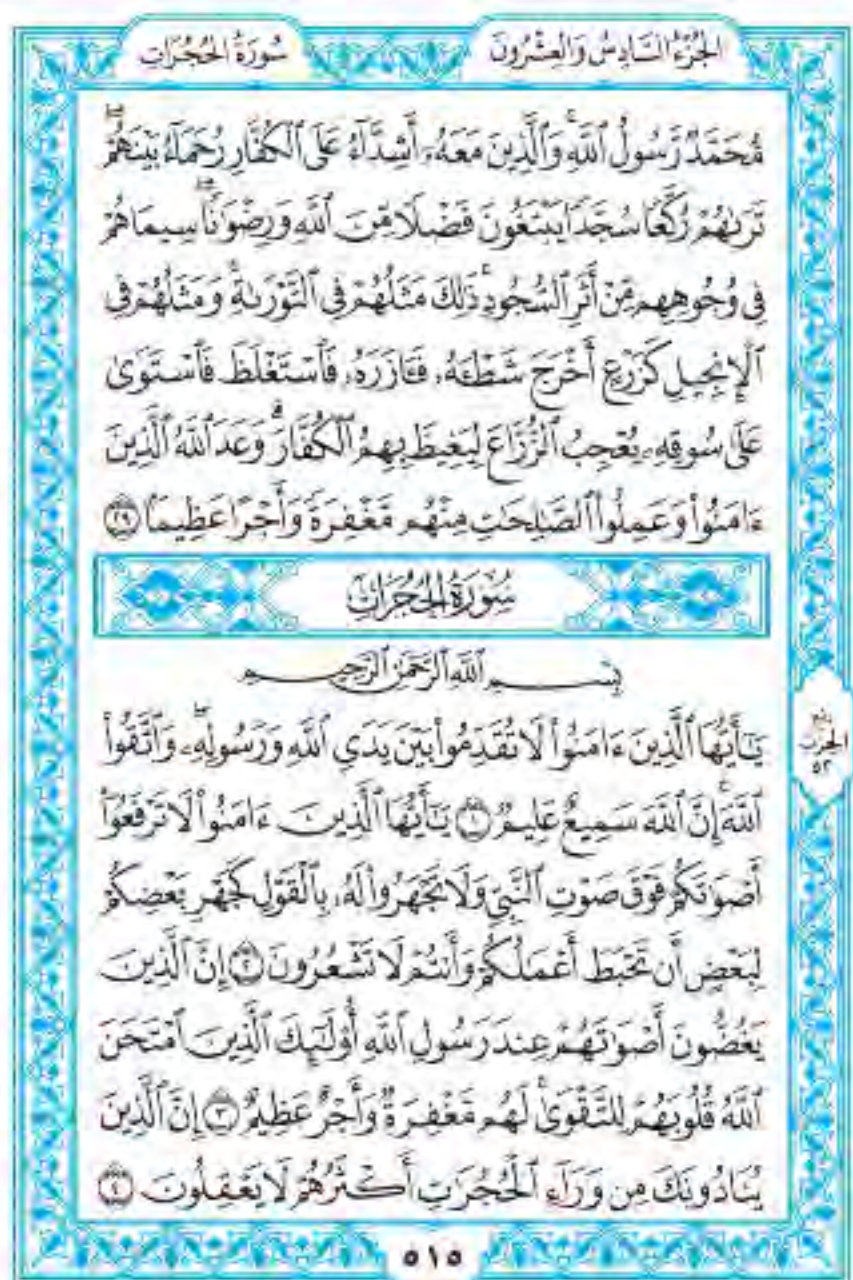 الجُزْءُ السَّادِسُ وَالعِشْرُونَ
سُورَةُ الحُجُرَاتِ
مُّحَمَّدٌ رَّسُولُ ٱللَّهِۚ وَٱلَّذِينَ مَعَهُۥٓ أَشِدَّآءُ عَلَى ٱلْكُفَّارِ رُحَمَآءُ بَيْنَهُمْۖ
تَرَىٰهُمْ رُكَّعًا سُجَّدًا يَبْتَغُونَ فَضْلًا مِّنَ ٱللَّهِ وَرِضْوَٰنًاۖ سِيمَاهُمْ
فِى وُجُوهِهِم مِّنْ أَثَرِ ٱلسُّجُودِۚ ذَٰلِكَ مَثَلُهُمْ فِى ٱلتَّوْرَىٰةِۚ وَمَثَلُهُمْ فِى
ٱلْإِنجِيلِ كَزَرْعٍ أَخْرَجَ شَطْـَٔهُۥ فَـَٔازَرَهُۥ فَٱسْتَغْلَظَ فَٱسْتَوَىٰ
عَلَىٰ سُوقِهِۦ يُعْجِبُ ٱلزُّرَّاعَ لِيَغِيظَ بِهِمُ ٱلْكُفَّارَۗ وَعَدَ ٱللَّهُ ٱلَّذِينَ
ءَامَنُوا۟ وَعَمِلُوا۟ ٱلصَّٰلِحَٰتِ مِنْهُم مَّغْفِرَةً وَأَجْرًا عَظِيمًۢا ٢٩
سُورَةُ الحُجُرَاتِ
بِسْمِ ٱللَّهِ ٱلرَّحْمَٰنِ ٱلرَّحِيمِ
يَٰٓأَيُّهَا ٱلَّذِينَ ءَامَنُوا۟ لَا تُقَدِّمُوا۟ بَيْنَ يَدَىِ ٱللَّهِ وَرَسُولِهِۦۖ وَٱتَّقُوا۟
ٱللَّهَۚ إِنَّ ٱللَّهَ سَمِيعٌ عَلِيمٌ ١ يَٰٓأَيُّهَا ٱلَّذِينَ ءَامَنُوا۟ لَا تَرْفَعُوٓا۟
أَصْوَٰتَكُمْ فَوْقَ صَوْتِ ٱلنَّبِىِّ وَلَا تَجْهَرُوا۟ لَهُۥ بِٱلْقَوْلِ كَجَهْرِ بَعْضِكُمْ
لِبَعْضٍ أَن تَحْبَطَ أَعْمَٰلُكُمْ وَأَنتُمْ لَا تَشْعُرُونَ ٢ إِنَّ ٱلَّذِينَ
يَغُضُّونَ أَصْوَٰتَهُمْ عِندَ رَسُولِ ٱللَّهِ أُو۟لَٰٓئِكَ ٱلَّذِينَ ٱمْتَحَنَ
ٱللَّهُ قُلُوبَهُمْ لِلتَّقْوَىٰۚ لَهُم مَّغْفِرَةٌ وَأَجْرٌ عَظِيمٌ ٣ إِنَّ ٱلَّذِينَ
يُنَادُونَكَ مِن وَرَآءِ ٱلْحُجُرَٰتِ أَكْثَرُهُمْ لَا يَعْقِلُونَ ٤
٥٢
٥١٥